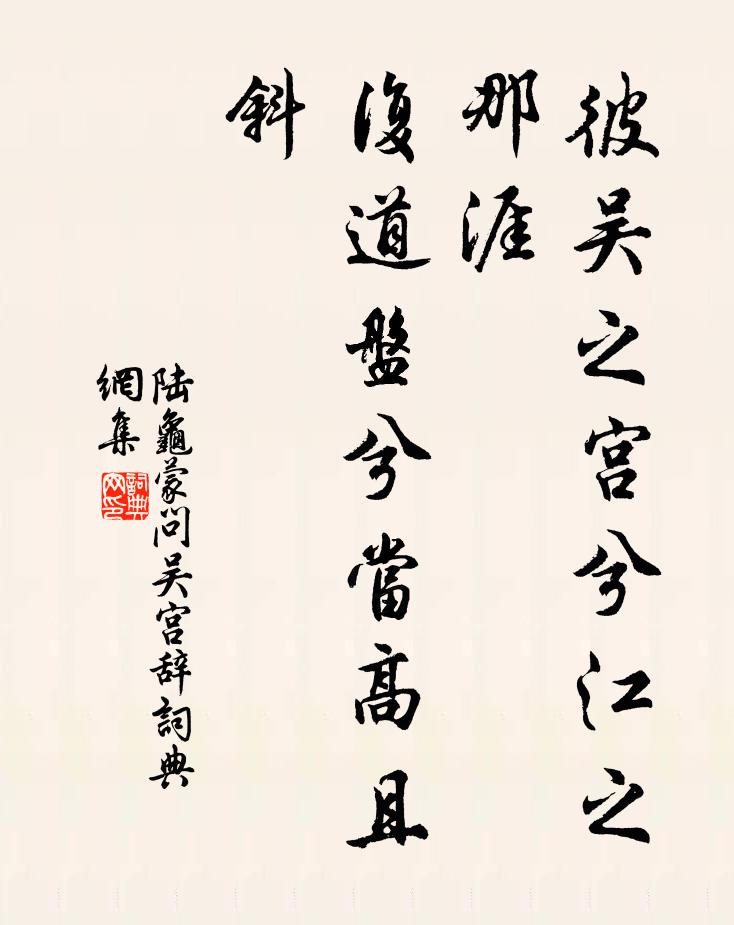 彼吴之宫兮江之
那涯
復道盤兮當高且
斜
陆龜蒙问吴宫辞詞典
網集
詞典
网印